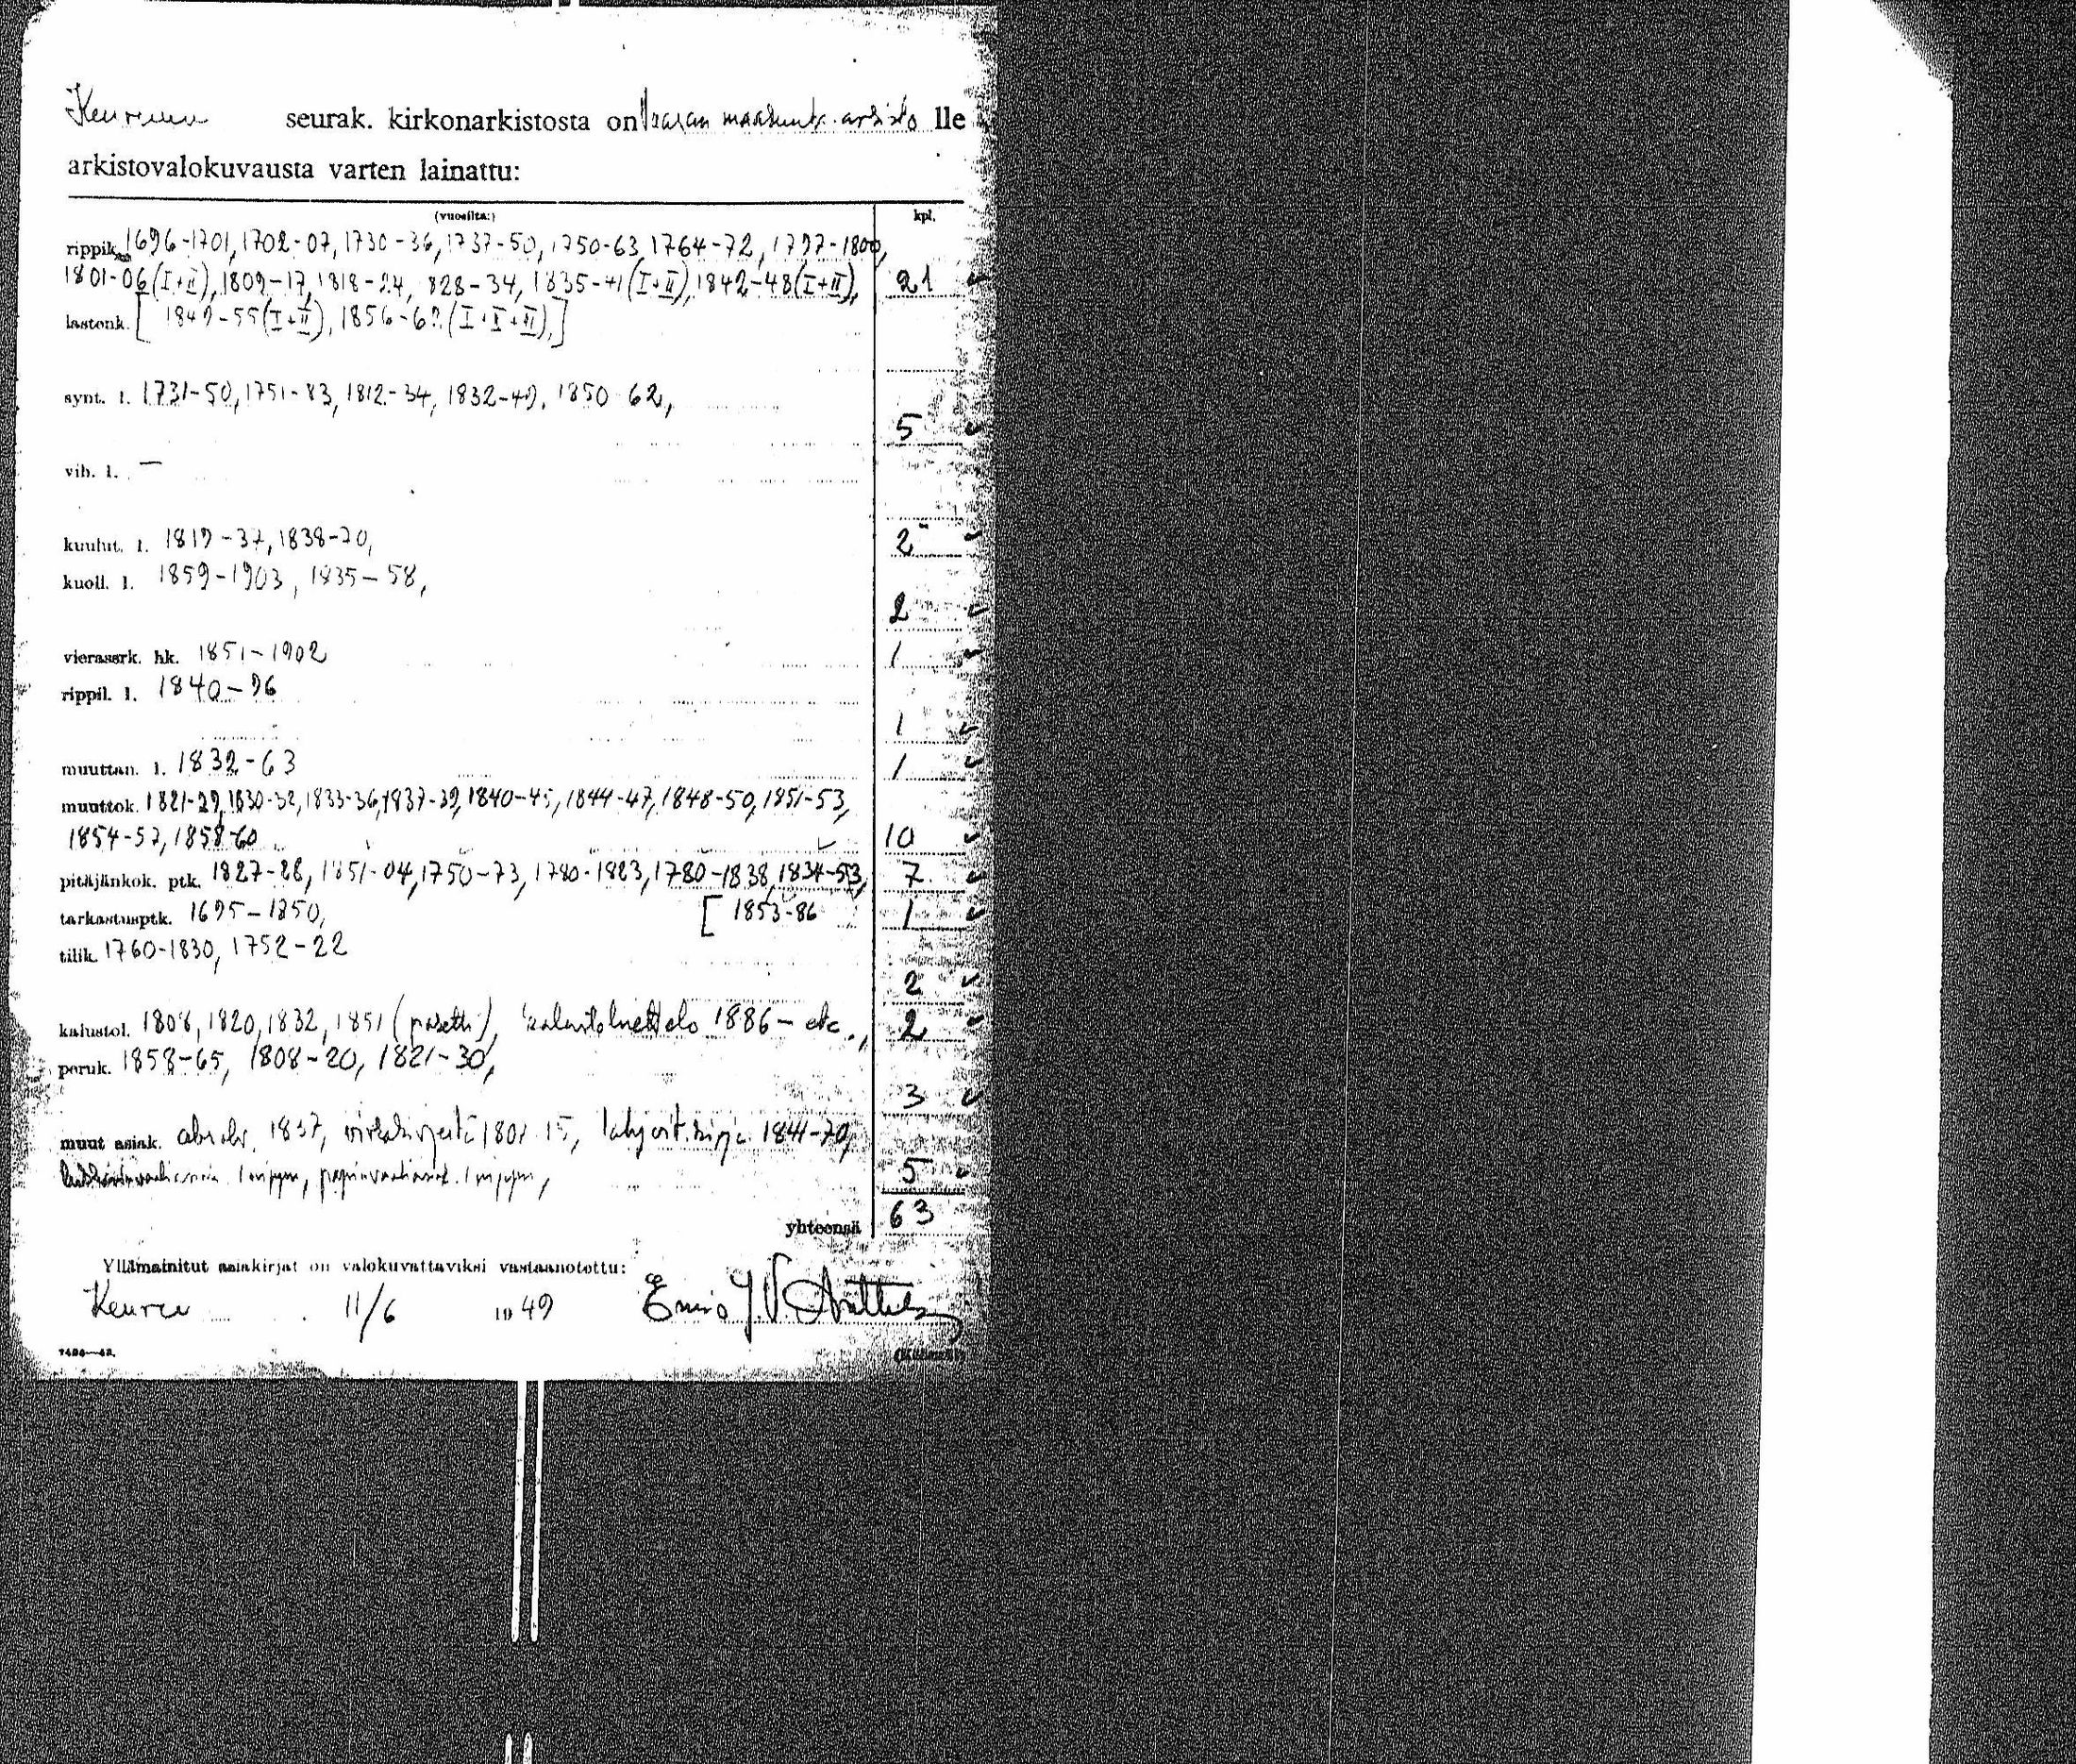 Keuruun seurak. kirkonarkistosta on Vaasan maakunta-arkisto lle
arkistovalokuvausta varten lainattu:
(vuosilta:) kpl.
rippik. 1696-1701, 1702-07, 1730-36, 1737-50, 1750-63, 1764-72, 1797-1800,
1801-06 (I+II), 1809-17, 1818-24, 828-34, 1835-41 (I+II), 1842-48 (I+II), 21
lastenk. [ 1849-55 (I+II), 1856-62 (I+II+III),]
synt. l. 1731-50, 1751-83, 1812-34, 1832-49, 1850-62,
5
vih. l. —
kuulut. l. 1819-37, 1838-70, 2
kuoll. l. 1859-1903, 1835-58,
2
vierassrk. hk. 1851-1902 1
rippil. l. 1840-96
1
muuttan. l. 1832-63 1
muuttok. 1821-29, 1830-32, 1833-36, 1837-39, 1840-45, 1844-47, 1848-50, 1851-53,
1854-57, 1858-60 10
pitäjänkok. ptk. 1827-28, 1851-04, 1750-73, 1780-1883, 1780-1838, 1834-53, 7
tarkastusptk. 1695-1850, [ 1853-86 1
tilik. 1760-1830, 1752-22
2
kalustol. 1808, 1820, 1832, 1851 (paketti), kalustoluettelo 1886- etc., 2
peruk. 1858-65, 1808-20, 1821-30,
3
muut asiak. 1837, virkakirjeitä 1801-15, lahjoit.kirja 1841-70,
1 nippu, 1 nippu, 5
yhteensä 63
Yllämainitut asiakirjat on valokuvattaviksi vastaanotettu:
Keuruu 11/6 1949